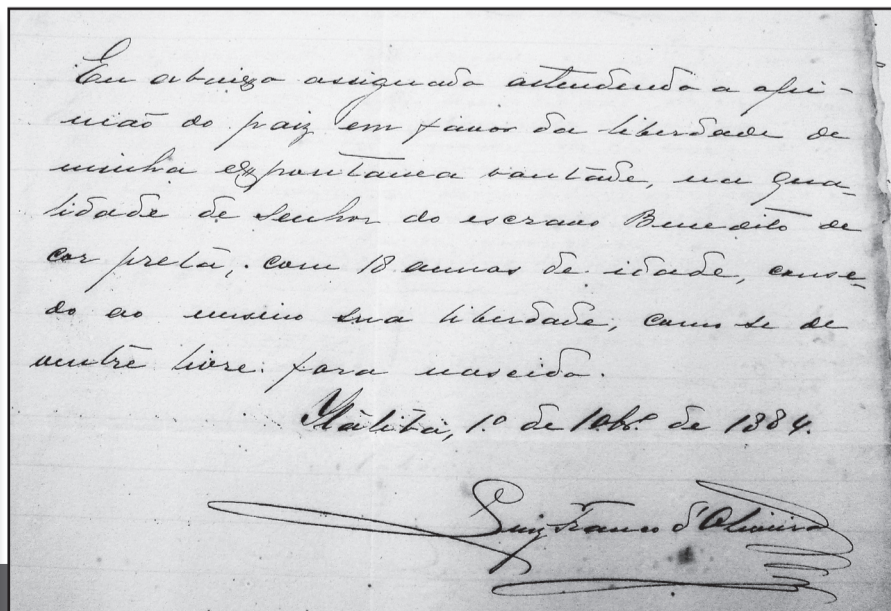 Eu abaixo assignado attendendo a opi-
nião do paiz em favor da liberdade de
minha expontanea vontade, na qua-
lidade de Senhor do escravo Benedito de
cor preta, com 18 annos de idade, conse-
do ao mesmo sua liberdade, como se de
ventre livre fora nascido.
Itatiba, 1º de 10bro de 1884.
Luiz Franco d'Oliveira